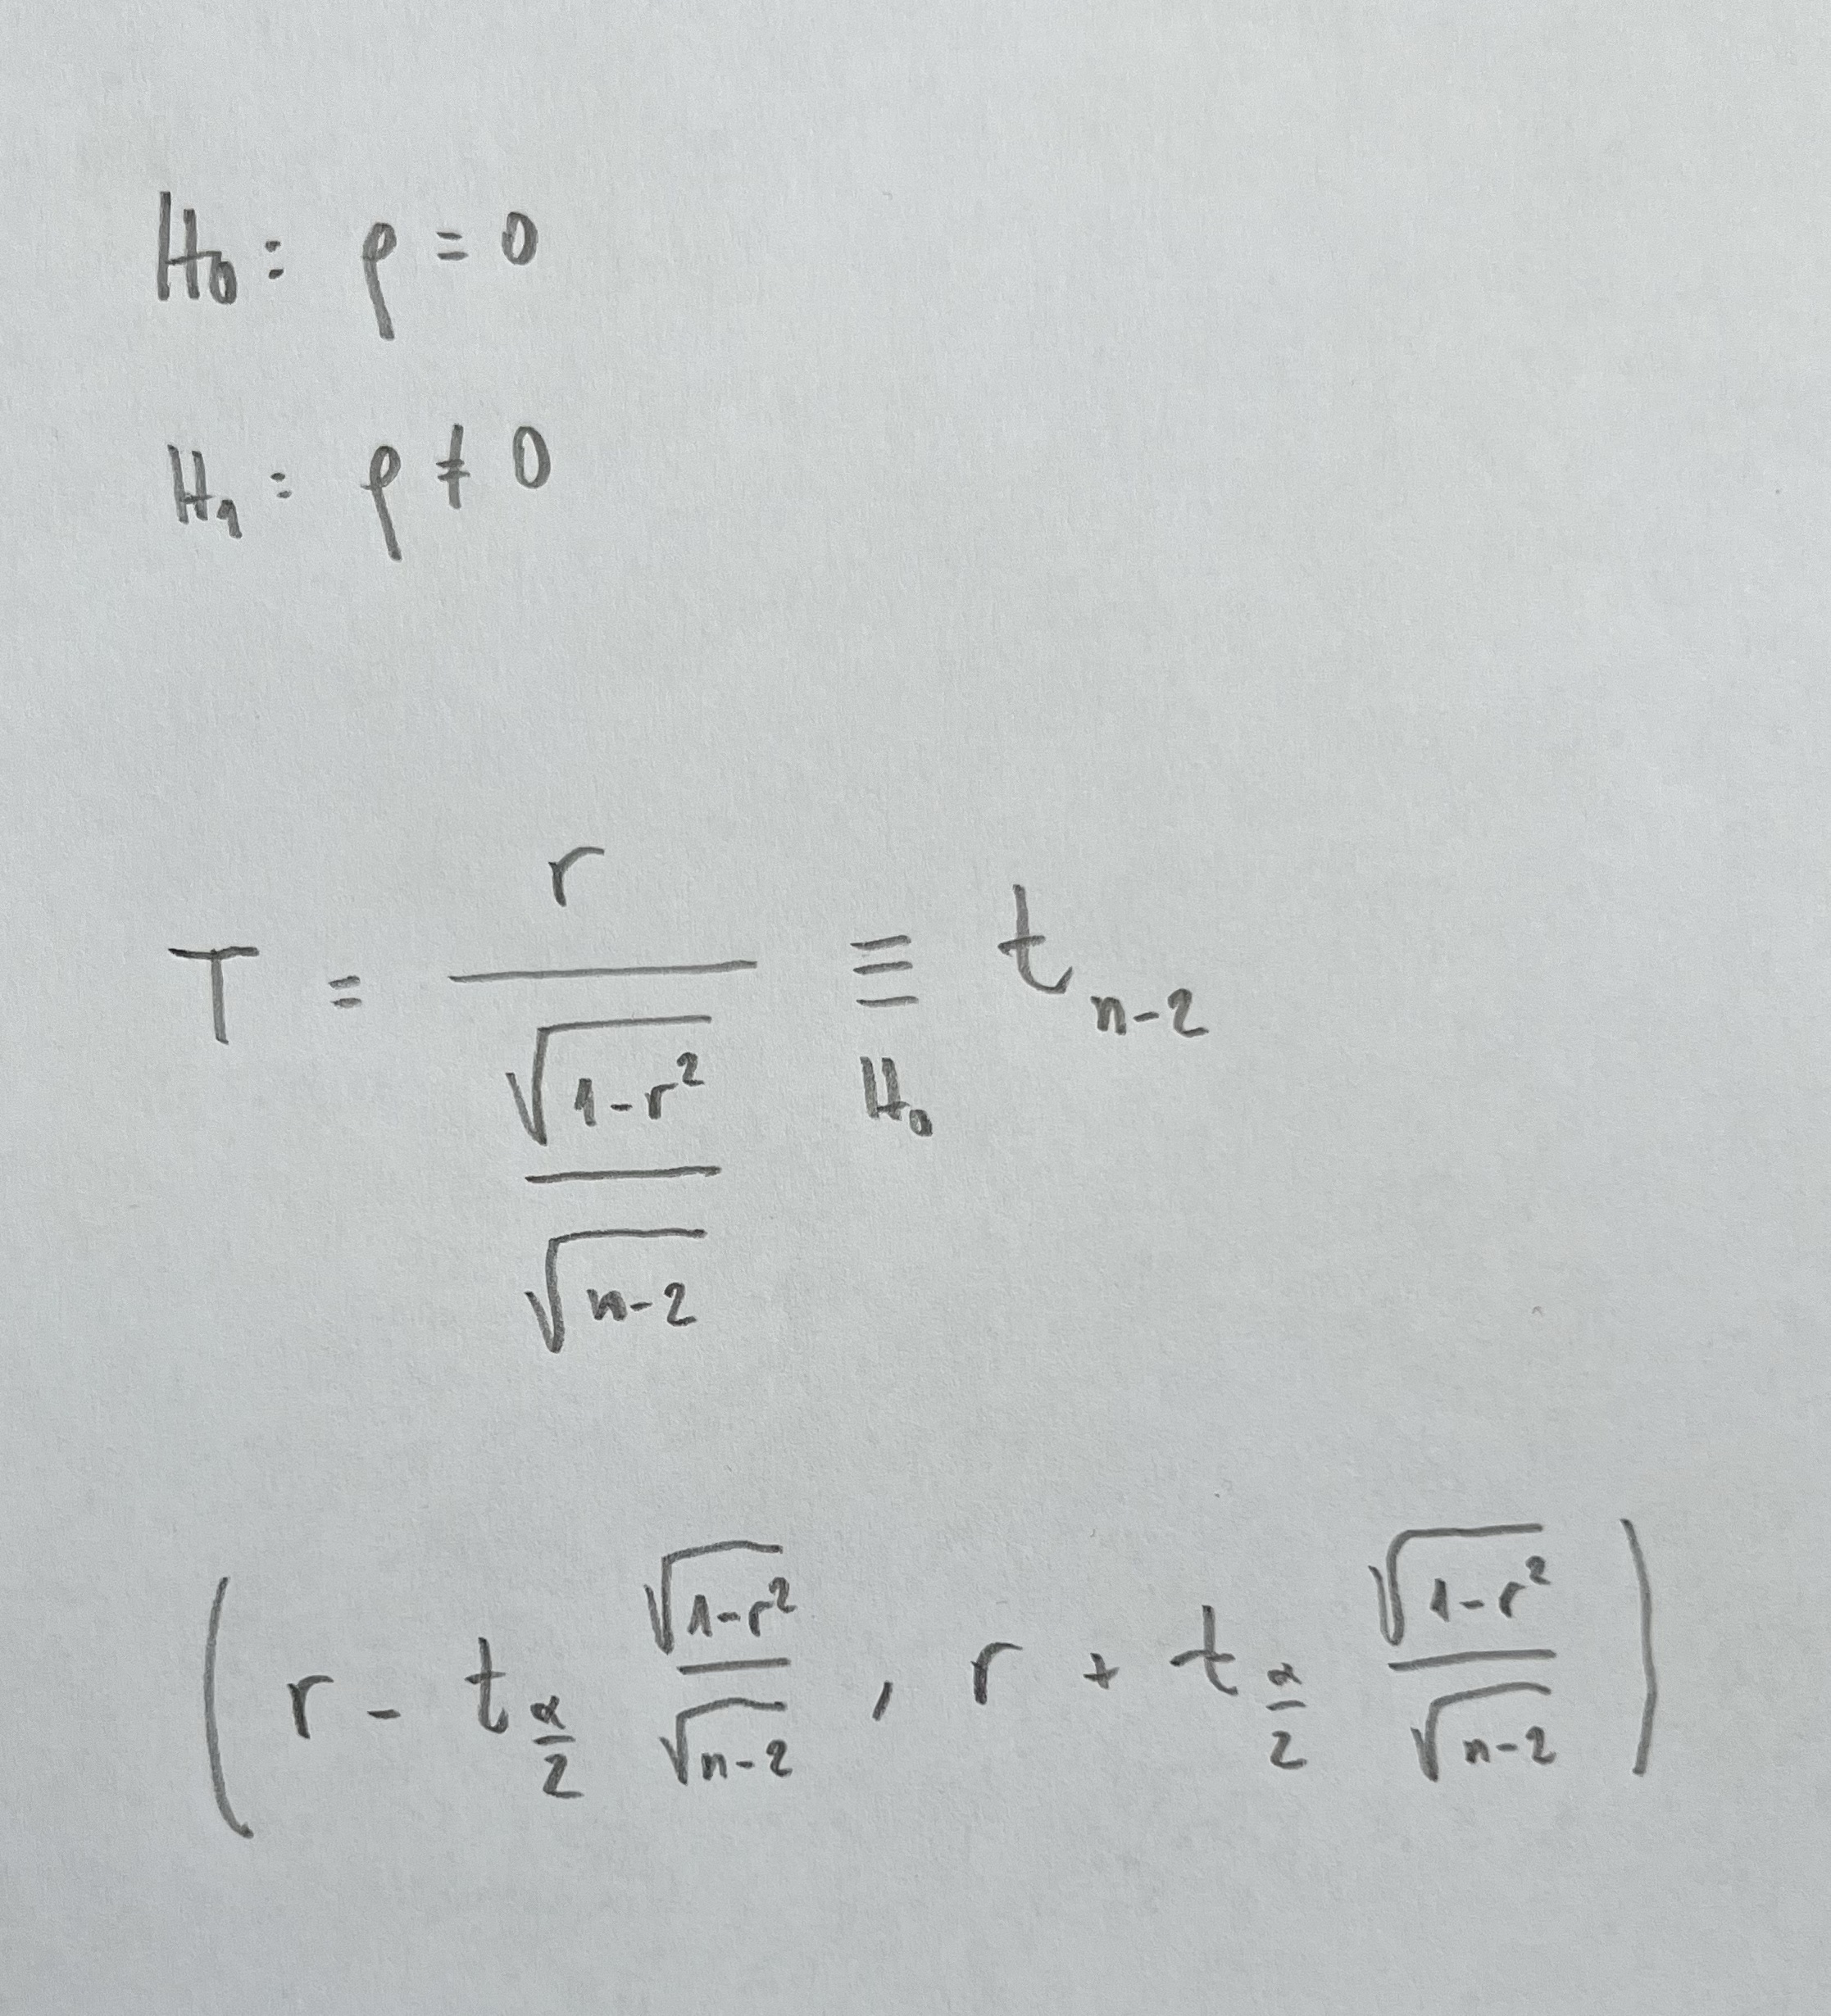 H₀: ρ = 0
H₁: ρ ≠ 0
T = r / (√(1-r²) / √(n-2)) ≡ t_{n-2}
H₀
(r - t_{α/2} √(1-r²)/√(n-2), r + t_{α/2} √(1-r²)/√(n-2))